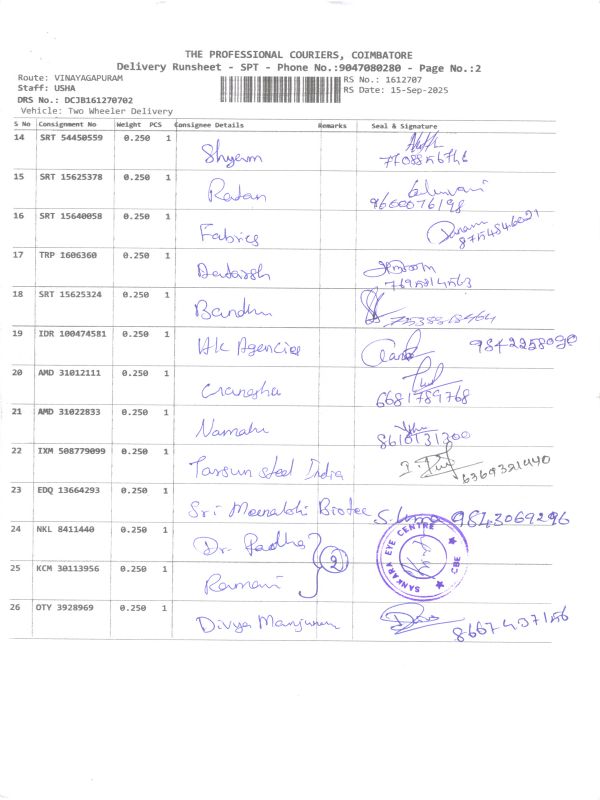 THE PROFESSIONAL COURIERS, COIMBATORE
Delivery Runsheet - SPT - Phone No.:9047080280 - Page No.:2
Route: VINAYAGAPURAM RS No.: 1612707
Staff: USHA RS Date: 15-Sep-2025
DRS No.: DCJB161270702
Vehicle: Two Wheeler Delivery
S No Consignment No Weight PCS Consignee Details Remarks Seal & Signature
14 SRT 54450559 0.250 1 Shyam
15 SRT 15625378 0.250 1 Ratan 9600076198
16 SRT 15640058 0.250 1 Fabrics 8754546021
17 TRP 1606360 0.250 1 Aadarsh 7695814563
18 SRT 15625324 0.250 1 Bandhu
19 IDR 100474581 0.250 1 HK Agencies 9842258090
20 AMD 31012111 0.250 1 6681789768
21 AMD 31022833 0.250 1 Namahi 8610131300
22 IXM 508779099 0.250 1 Tarsun steel India 6369321440
23 EDQ 13664293 0.250 1 Sri Meenakshi Biotec S. Uma 9843069296
24 NKL 8411440 0.250 1 Dr. Radha 2 SANKARA EYE CENTRE CBE
25 KCM 30113956 0.250 1 Ramani
26 OTY 3928969 0.250 1 Divya 8667437156